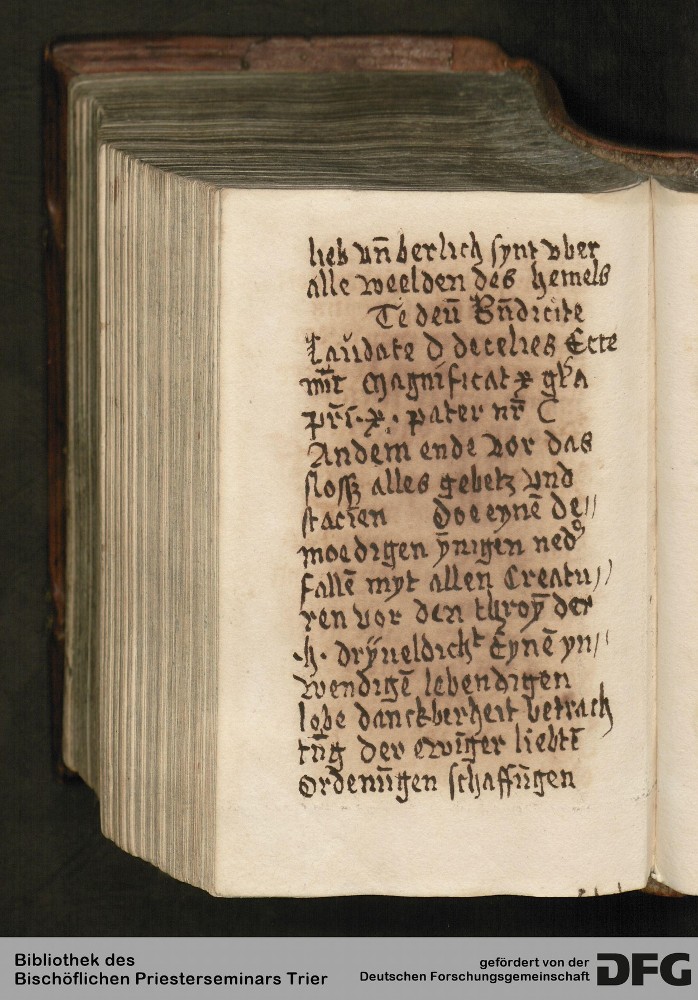 lieb vñ herlich synt vber
alle weelden des hemels
Te deū Bñdicite
Laudate d decelies Ecce
mit Magnificat
pri. pater nr̄
Andem ende vor das
sloss alles gebetz vnd
stacien Doe eynē de//
moedigen ÿnigen ned
fallē myt allen Creatu//
ren vor den throÿ der
.h. drÿueldicht Eynē yn//
wendigē lebendigen
lobe danckberheit betrach
tūg der ewiger liebte
Ordenūgen schaffūgen
Bibliothek des
Bischöflichen Priesterseminars Trier
gefördert von der
Deutschen Forschungsgemeinschaft
DFG